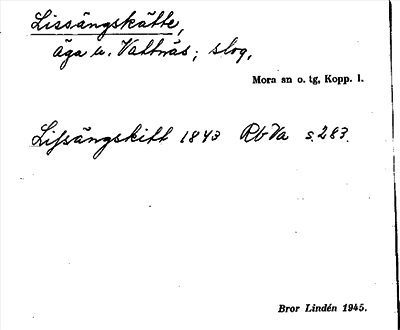 Lissängskätte,
äga u. Vattnäs; slog,
Mora sn o. tg, Kopp. l.
Lissängskitt 1843 RbVa s. 283.
Bror Lindén 1945.